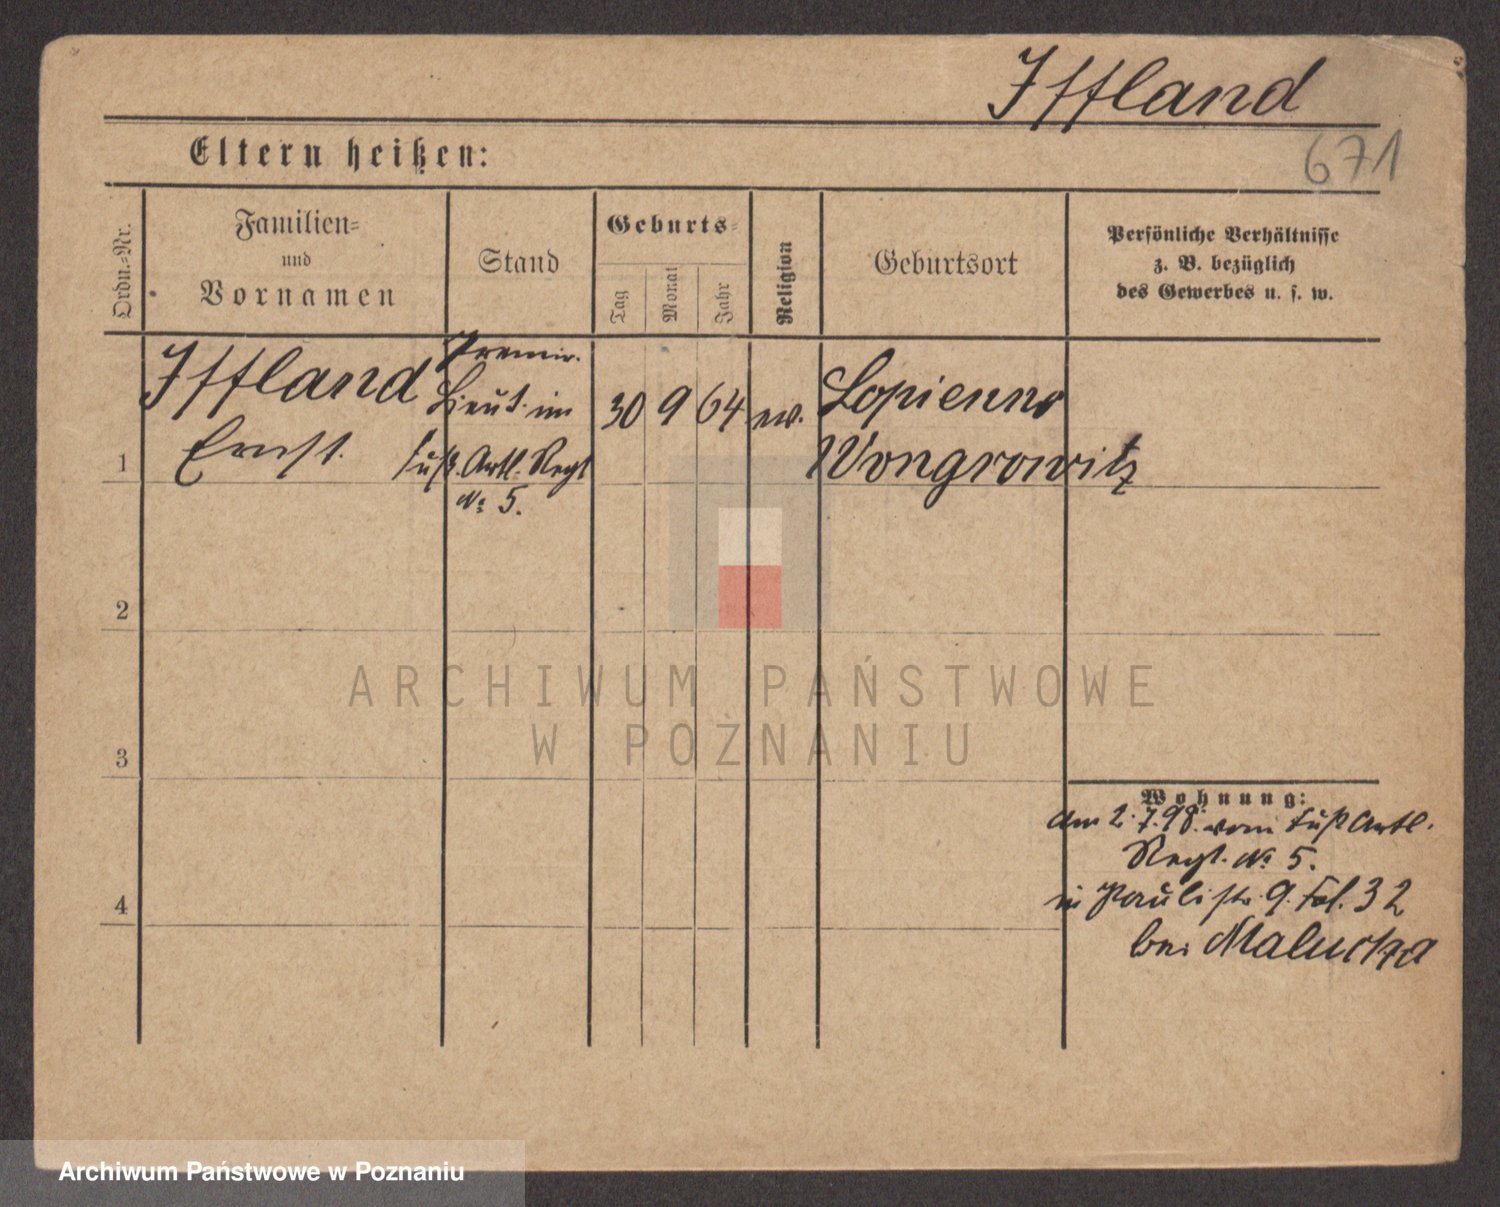 Iffland
671
Eltern heißen:
Ordn.-Nr.
Familien-
und
Vornamen
Stand
Geburts-
Tag
Monat
Jahr
Religion
Geburtsort
Persönliche Verhältnisse
z. B. bezüglich
des Gewerbes u. s. w.
1
Iffland
Ernst.
Premir.
Lieut. im
Fuß. Artl. Regt
No 5.
30 9 64
ev.
Lopienno
Wongrowitz
2
3
4
Wohnung:
Am 2.7.98. vom Fuß Artl.
Regt. No 5.
in Paulistr. 9. Fol. 32
bei
ARCHIWUM PAŃSTWOWE
W POZNANIU
Archiwum Państwowe w Poznaniu